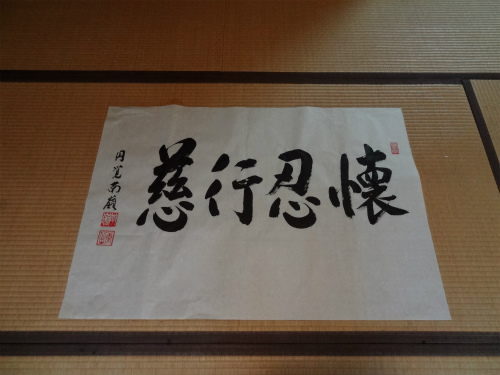 懐忍行慈
円覚南嶺